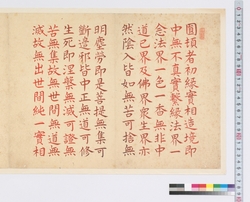 圓頓者初縁實相造境即
中無不真實繋縁法界一
念法界一色一香無非中
道己界及佛界衆生界亦
然陰入皆如無苦可捨無
明塵勞即是菩提無集可
斷邊邪皆中正無道可修
生死即涅槃無滅可證無
苦無集故無世間無道無
滅故無出世間純一實相